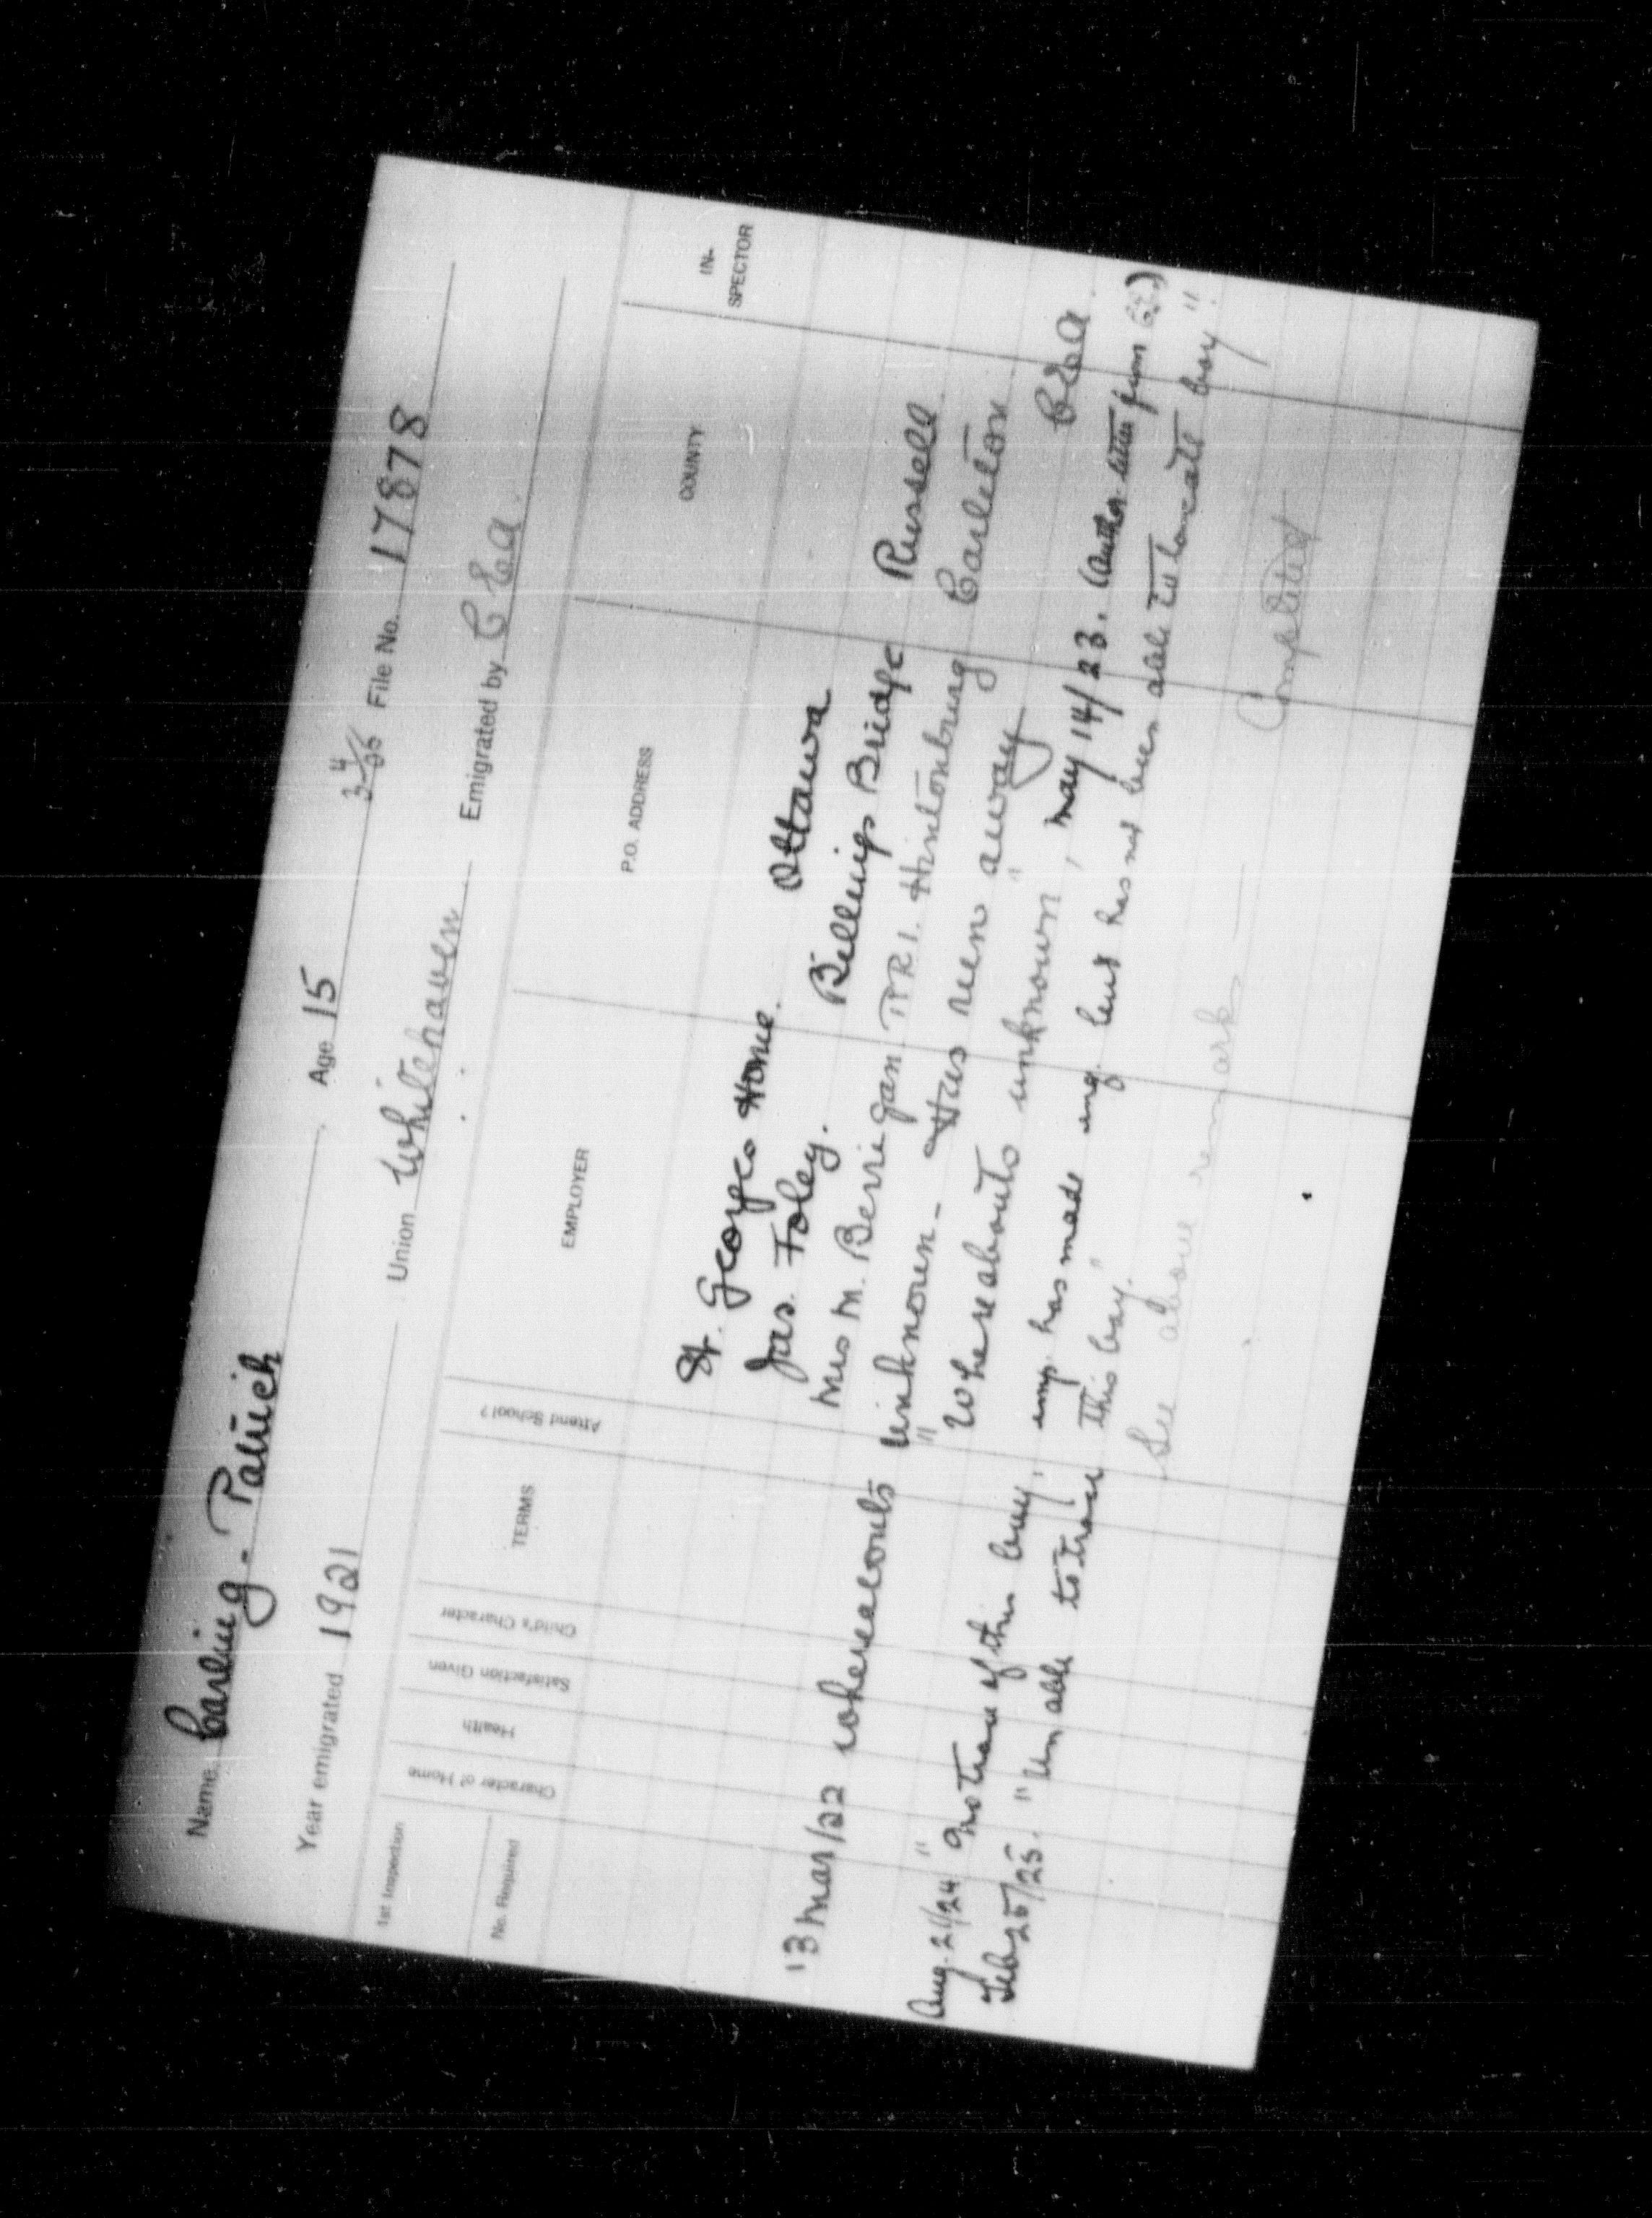 Name Carling - Patrick Age 15
3 4/05 File No. 17878
Year emigrated 1921 Union Whitehaven Emigrated by C E A.
1st Inspection
No. Required
Character of Home
Health
Satisfaction Given
Child's Character
TERMS
Attend School?
EMPLOYER
P.O. ADDRESS
COUNTY
IN-
SPECTOR
St. Georges Home. Ottawa
Jas. Foley. Billings Bridge Russell
Mrs M. Berrigan RR1. Hintonburg Carleton
13 Mar/22 whereabouts unknown - Has run away
"Whereabouts unknown", May 14/23. (Auth. letter from C E A.
Aug. 21/24 "No trace of this boy, emp. has made enq. but has not been able to locate boy".
Feb 25/25. "Unable to trace this boy."
See above remarks
Completed